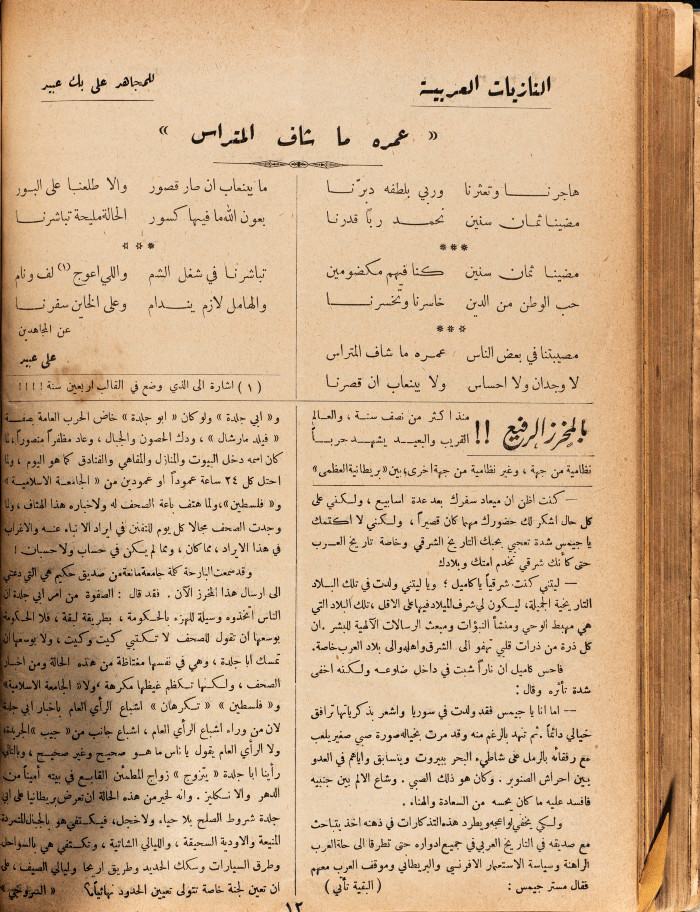 النازيات العربية
للمجاهد على بك عبيد
« عمره ما شاف المتراس »
هاجرنا وتعثرنا وربي بلطفه دبرّنا
مضينا ثمان سنين نحمد ربّا قدرنا
***
مضينا ثمان سنين كنا فيهم مكضومين
حب الوطن من الدين خاسرنا وتخسرنا
***
مصيبتنا في بعض الناس عمره ما شاف المتراس
لا وجدان ولا احساس ولا ينعاب ان قصرنا
ما ينعاب ان صار قصور والا طلعنا على البور
بعون الله ما فيها كسور الحالة مليحة تباشرنا
***
تباشرنا في شغل الشم واللي اعوج (١) لف ونام
والهامل لازم ينـدام وعلى الخاين سفرنا
عن المجاهدين
على عبيد
(١) اشارة الى الذي وضع في القالب اربعين سنة !!!!
بالمخرز الرفيع !!
منذ اكثر من نصف سنة ، والعالم
القريب والبعيد يشهد حرباً
نظامية من جهة ، وغير نظامية من جهة اخرى، بين «بريطانية العظمى»
— كنت اظن ان ميعاد سفرك بعد عدة اسابيع ، ولكني على
كل حال اشكر لك حضورك مهما كان قصيراً ، ولكني لا اكتمك
يا جيمس شدة تعجبي بحبك التاريخ الشرقي وخاصة تاريخ العرب
حتى كأنك شرقي تخدم امتك وبلادك
— ليتني كنت شرقياً ياكاميل ؛ ويا ليتني ولدت في تلك البلاد
التاريخية الجميلة، ليكون لي شرف الميلاد فيها على الاقل ، تلك البلاد التي
هي مهبط الوحي ومنشأ النبؤات ومبعث الرسالات الآلهية للبشر . ان
كل ذرة من ذرات قلبي تهفو الى الشرق واهله والى بلاد العرب خاصة.
فاحس كاميل ان ناراً شبت في داخل ضلوعه ولكنه اخفى
شدة تأثره وقال :
— اما انا يا جيمس فقد ولدت في سوريا واشعر بذكرياتها ترافق
خيالي دائماً . ثم تنهد بالرغم منه وقد مرت بخياله صورة صبي صغير يلعب
مع رفقائه بالرمل على شاطىء البحر ببيروت ويتسابق واياهم في العدو
بين احراش الصنوبر . وكان هو ذلك الصبي . وشاع الالم بين جنبيه
فافسد عليه ما كان يحسه من السعادة والهناء .
ولكي يخفي لواعجه ويطرد هذه التذكارات في ذهنه اخذ يتباحث
مع صديقه في التاريخ العربي في جميع ادواره حتى تطرقا الى حلة العرب
الراهنة وسياسة الاستعمار الافرنسي والبريطاني وموقف العرب معهم
فقال مستر جيمس : (البقية تأتي)
و« ابي جلدة » ولو كان « ابو جلدة » خاض الحرب العامة بصفة
« فيلد مارشال » ، ودك الحصون والجبال ، وعاد مظفراً منصوراً، لما
كان اسمه دخل البيوت والمنازل والمقاهي والفنادق كما هو اليوم ، ولما
احتل كل ٢٤ ساعة عموداً او عمودين من « الجامعة الاسلامية »
و« فلسطين »، ولما هتف باعة الصحف له ولاخباره هذا الهتاف ، ولما
وجدت الصحف مجالا كل يوم للتفنن في ايراد الانباء عنه والاغراب
في هذا الايراد ، مما كان ، ومما لم يكن في حساب ولا حسبان !
وقد سمعت البارحة كلة جامعة مانعة من صديق حكيم هي التي دعتني
الى ارسال هذا المخرز الآن . فقد قال : الصفوة من امر ابي جلدة ان
الناس اتخذوه وسيلة للهزء بالحكومة ، بطريقة لبقة ، فلا الحكومة
بوسعها ان تقول للصحف لا تكتبي كيت وكيت ، ولا بوسعها ان
تمسك ابا جلدة ، وهي في نفسها مغتاظة من هذه الحالة ومن اخبار
الصحف ، ولكنها تكظم غيظها مكرهة ، ولا « الجامعة الاسلامية »
و« فلسطين » « تكرهان » اشباع الرأي العام باخبار ابي جلدة
لان من وراء اشباع الرأي العام ، اشباع جانب من « جيب » الجريدة،
ولا الرأي العام يقول يا ناس ما هو صحيح وغير صحيح ، وبالتالي
رأينا ابا جلدة « يتزوج » زواج المطمئن القابع في بيته أميناً من
الدهر والانكليز . وانه لخير من هذه الحالة ان تعرض بريطانيا على ابي
جلدة شروط الصلح بلا حياء ولا خجل، فيكتفي هو بالجبال المتمردة
المنيعة والاودية السحيقة ، والليالي الشاتية ، وتكتفي هي بالسواحل
وطرق السيارات وسكك الحديد وطريق اريحا وليالي الصيف ، على
ان تعين لجنة خاصة تتولى تعيين الحدود نهائياً؟ « السروجي »
١٢